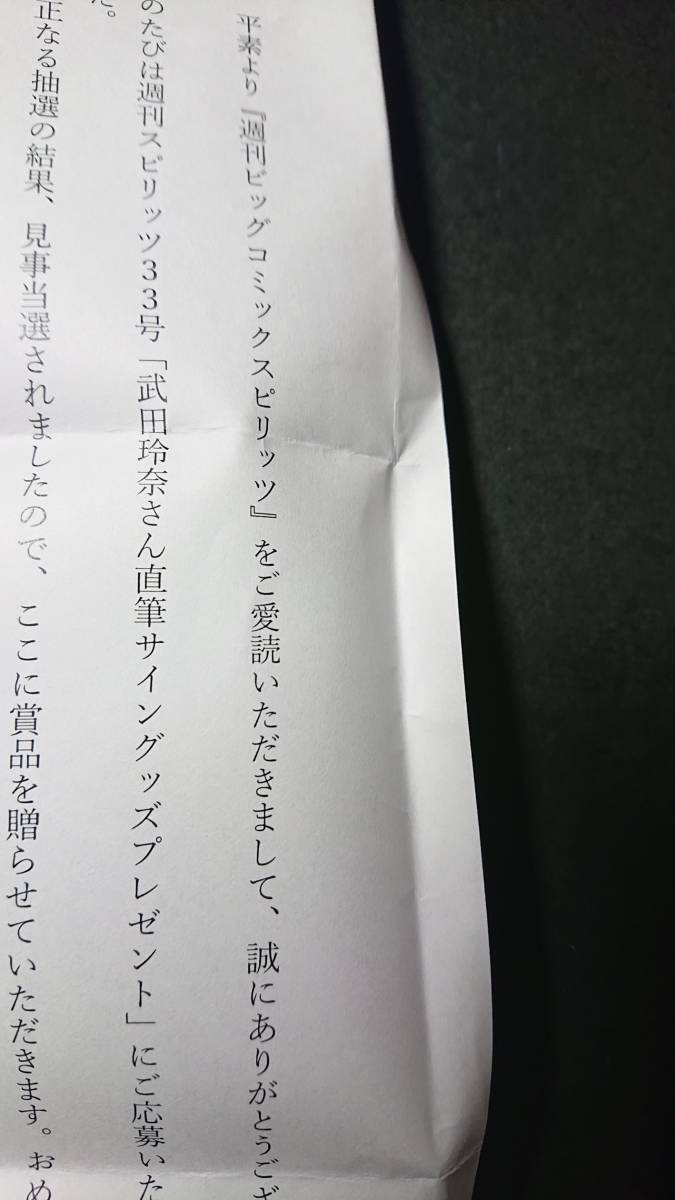 平素より『週刊ビッグコミックスピリッツ』をご愛読いただきまして、誠にありがとうござ
のたびは週刊スピリッツ33号「武田玲奈さん直筆サイングッズプレゼント」にご応募いた
た。
正なる抽選の結果、見事当選されましたので、ここに賞品を贈らせていただきます。おめ